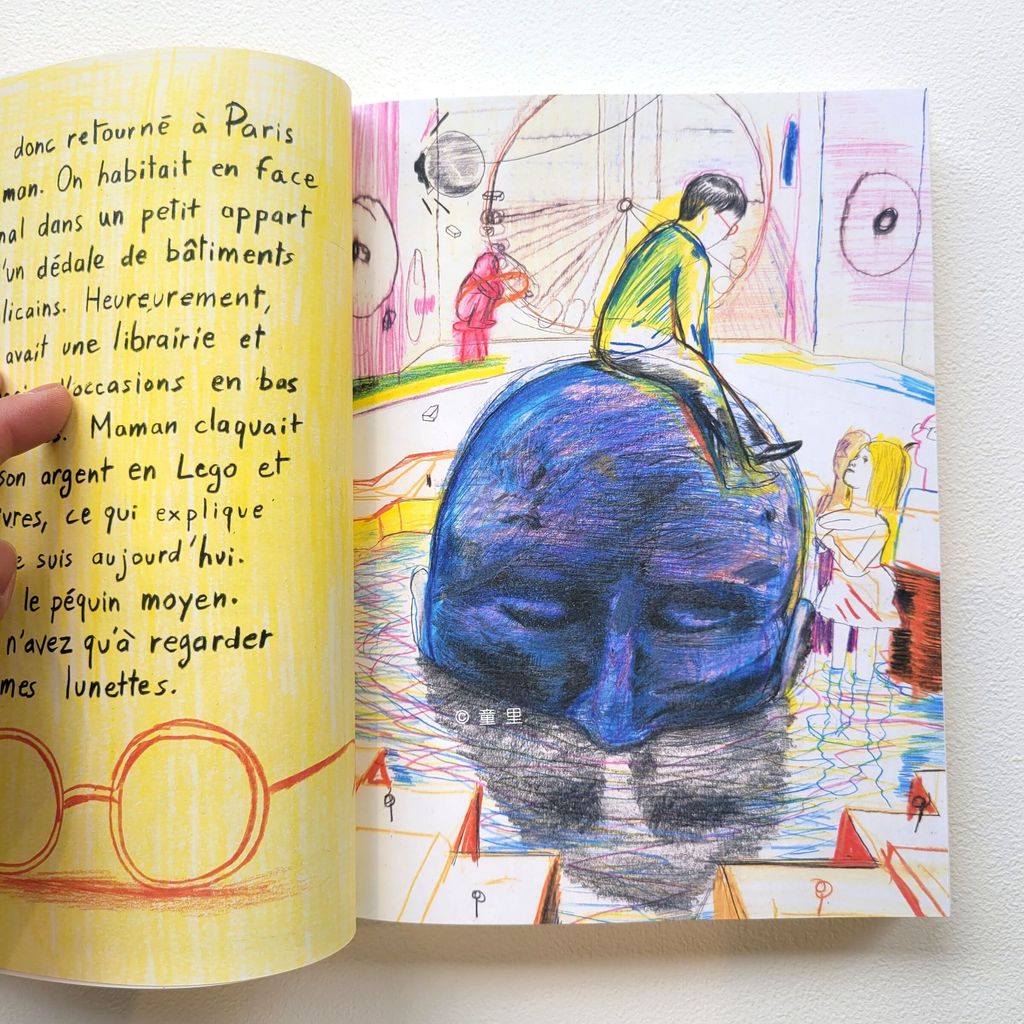 donc retourné à Paris
man. On habitait en face
nal dans un petit appart
'un dédale de bâtiments
licains. Heureurement,
avait une librairie et
d'occasions en bas
Maman claquait
son argent en Lego et
vres, ce qui explique
e suis aujourd'hui.
le péquin moyen.
n'avez qu'à regarder
mes lunettes.
© 童里